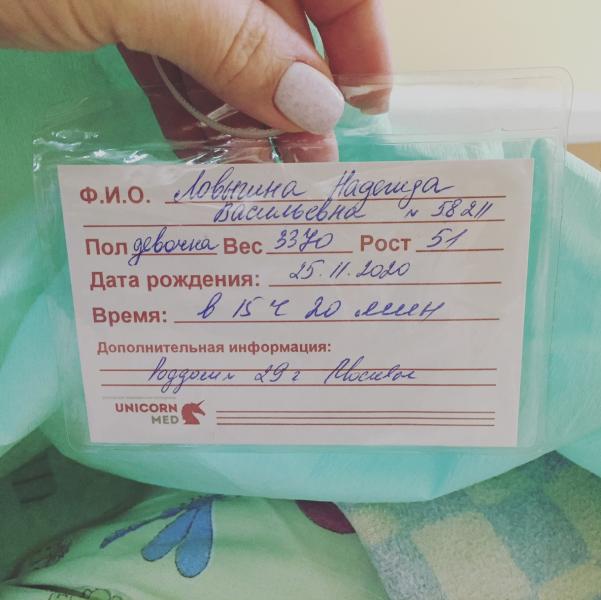 Ф.И.О. Ловыгина Надежда
Васильевна № 58211
Пол девочка Вес 3370 Рост 51
Дата рождения: 25.11.2020
Время: в 15 ч 20 мин
Дополнительная информация:
Роддом 29 г Москва
UNICORN
MED